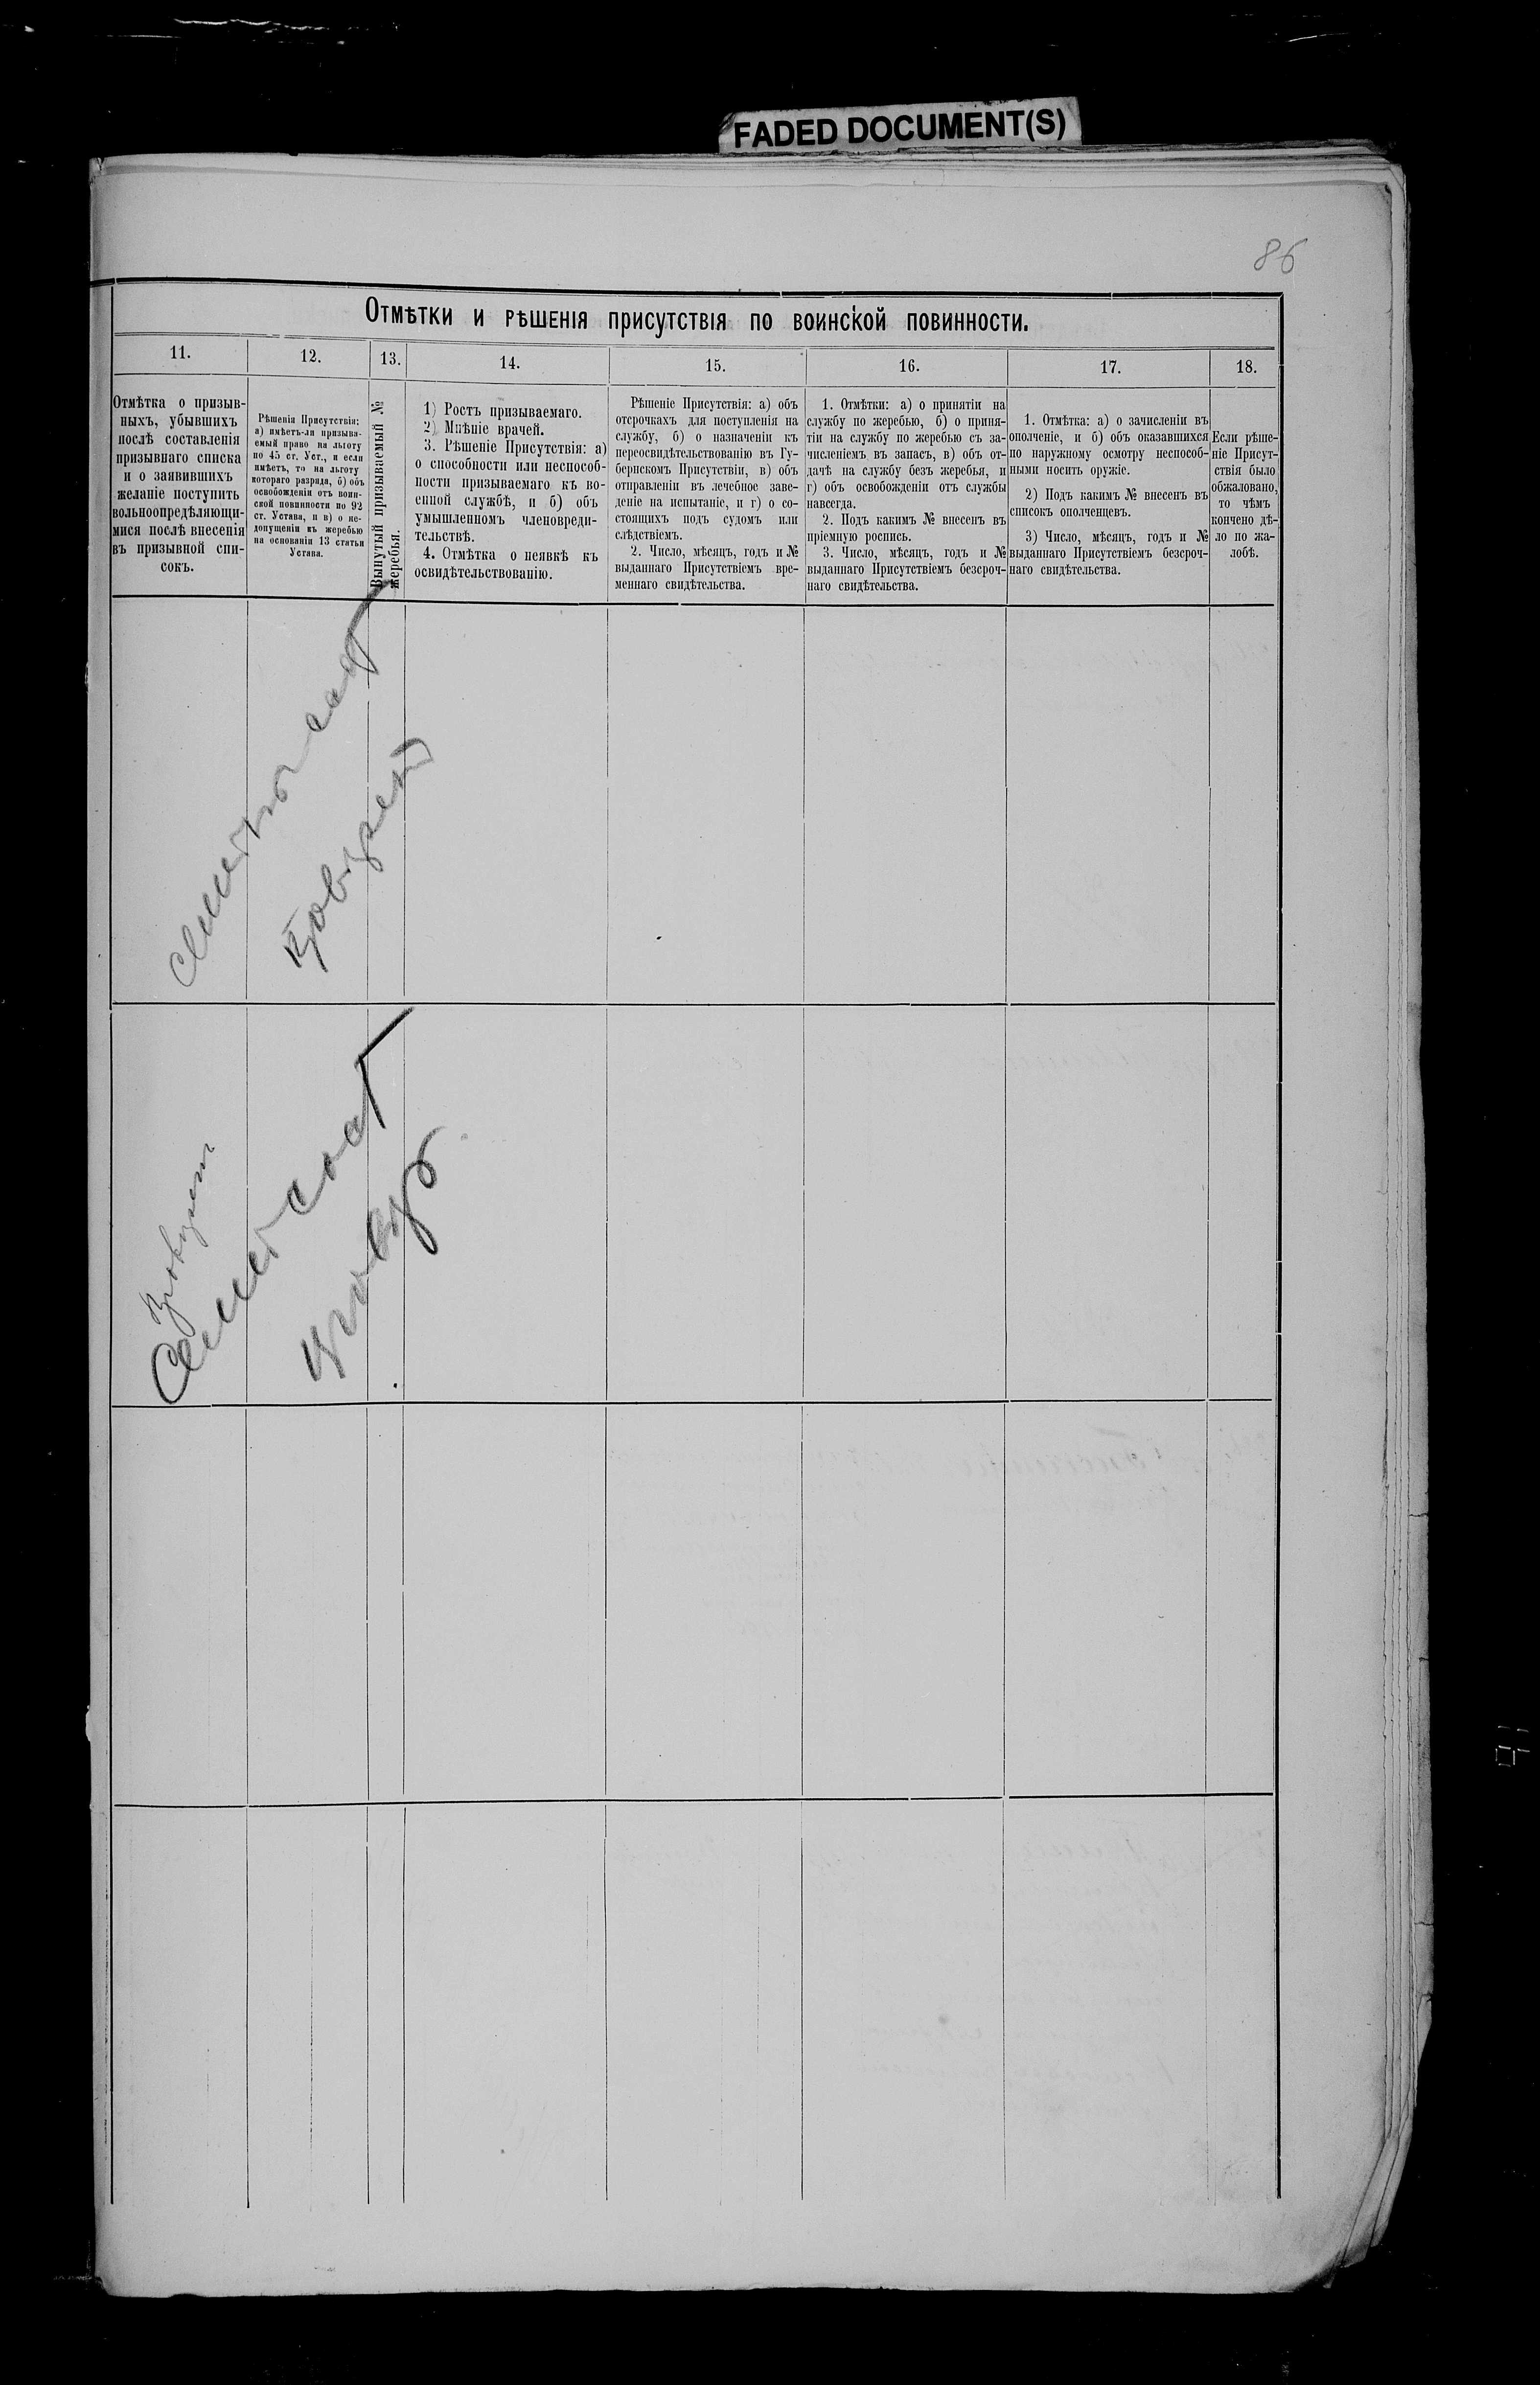 FADED DOCUMENT(S)
86
Отмѣтки и рѣшенія присутствія по воинской повинности.
11.
12.
13.
14.
15.
16.
17.
18.
Отмѣтка о призыв-
ныхъ, убывшихъ
послѣ составленія
призывнаго списка
и о заявившихъ
желаніе поступить
вольноопредѣляющи-
мися послѣ внесенія
въ призывной спи-
сокъ.
Рѣшенія Присутствія:
а) имѣетъ-ли призыва-
емый право на льготу
по 45 ст. Уст., и если
имѣетъ, то на льготу
котораго разряда, б) объ
освобожденіи отъ воин-
ской повинности по 92
ст. Устава, и в) о не-
допущеніи къ жеребью
на основаніи 13 статьи
Устава.
Вынутый призываемый №
жеребья.
1) Ростъ призываемаго.
2) Мнѣніе врачей.
3. Рѣшеніе Присутствія: а)
о способности или неспособ-
ности призываемаго къ во-
енной службѣ, и б) объ
умышленномъ членовреди-
тельствѣ.
4. Отмѣтка о неявкѣ къ
освидѣтельствованію.
Рѣшеніе Присутствія: а) объ
отсрочкахъ для поступленія на
службу, б) о назначеніи къ
переосвидѣтельствованію въ Гу-
бернскомъ Присутствіи, в) объ
отправленіи въ лечебное заве-
деніе на испытаніе, и г) о со-
стоящихъ подъ судомъ или
слѣдствіемъ.
2. Число, мѣсяцъ, годъ и №
выданнаго Присутствіемъ вре-
меннаго свидѣтельства.
1. Отмѣтки: а) о принятіи на
службу по жеребью, б) о приня-
тіи на службу по жеребью съ за-
численіемъ въ запасъ, в) объ от-
дачѣ на службу безъ жеребья, и
г) объ освобожденіи отъ службы
навсегда.
2. Подъ какимъ № внесенъ въ
пріемную роспись.
3. Число, мѣсяцъ, годъ и №
выданнаго Присутствіемъ безсроч-
наго свидѣтельства.
1. Отмѣтка: а) о зачисленіи въ
ополченіе, и б) объ оказавшихся
по наружному осмотру неспособ-
ными носить оружіе.
2) Подъ какимъ № внесенъ въ
списокъ ополченцевъ.
3) Число, мѣсяцъ, годъ и №
выданнаго Присутствіемъ безсроч-
наго свидѣтельства.
Если рѣше-
ніе Присут-
ствія было
обжаловано,
то чѣмъ
кончено дѣ-
ло по жа-
лобѣ.